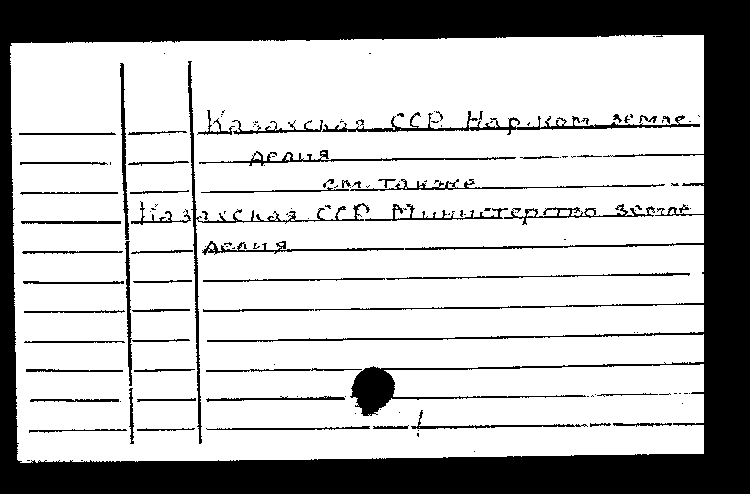 Казахская ССР Нар.ком. земле
делия
см. также
Казахская ССР Министерство земле
делия